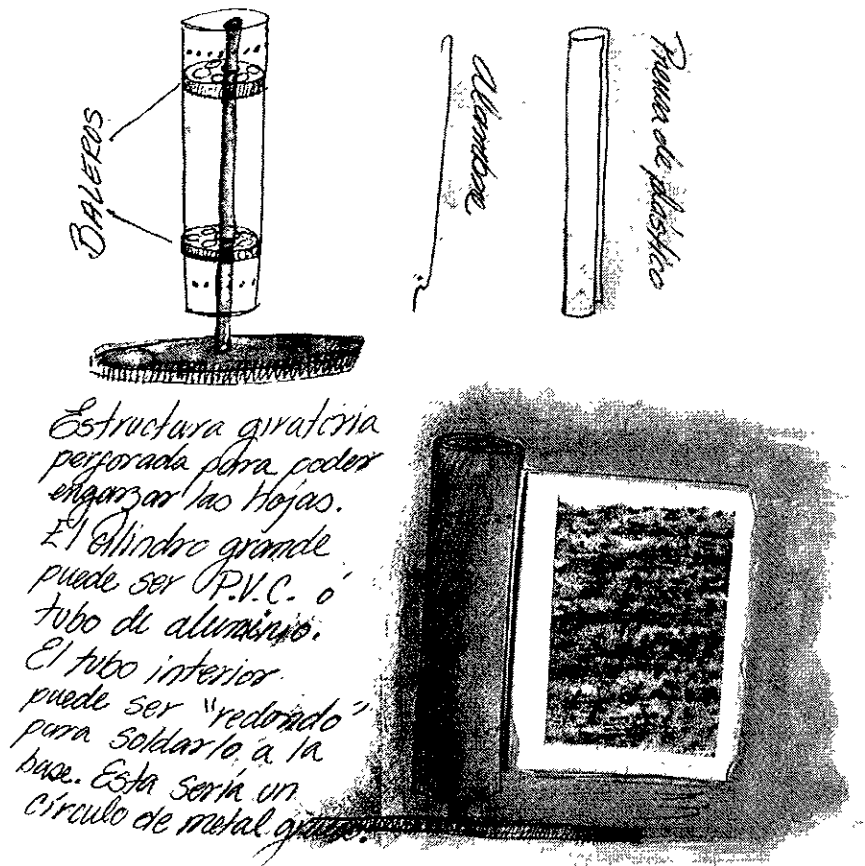 BALEROS
Alambre
Prensa de plástico
Estructura giratoria
perforada para poder
engarzar las Hojas.
El cilindro grande
puede ser P.V.C. ó
tubo de aluminio.
El tubo interior
puede ser "redondo"
para soldarlo a la
base. Esta sería un
círculo de metal